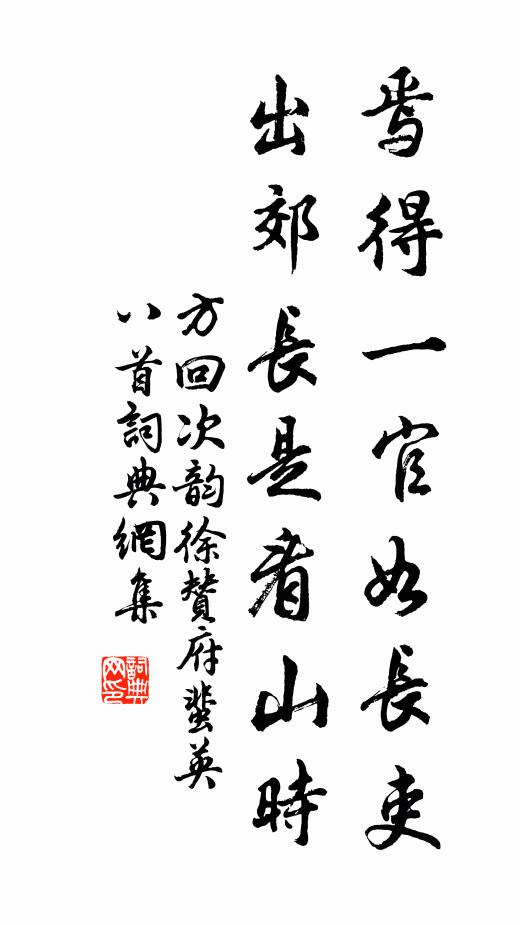 焉得一官如長吏
出郊長是看山時
方回次韵徐贊府蜚英
八首詞典網集
詞典網印